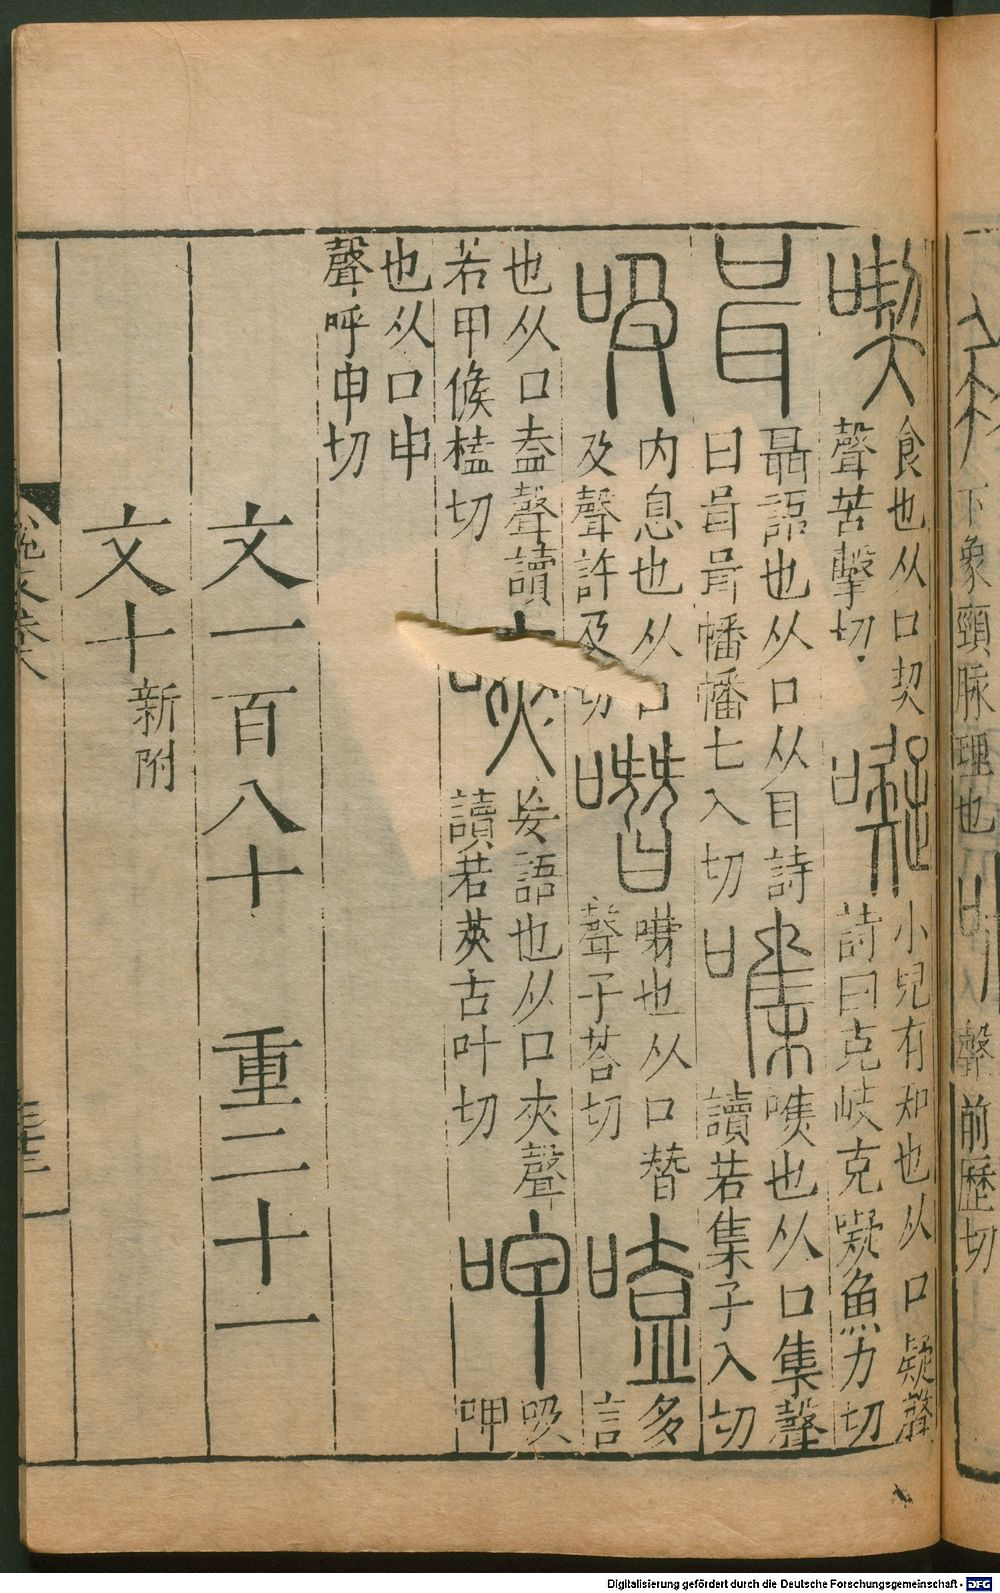 下象頸脉理也
聲前歷切
喫食也从口契
聲苦擊切
㘈小兒有知也从口疑聲
詩曰克岐克㘈魚力切
咠聶語也从口从耳詩
曰咠咠幡幡七入切
㗱噍也从口集聲
讀若集子入切
吸内息也从口
及聲許及切
噆嗛也从口朁
聲子荅切
嗑多
言
也从口盍聲讀
若甲候榼切
唊妄語也从口夾聲
讀若莢古叶切
呷吸
呷
也从口甲
聲呼甲切
文一百八十 重二十一
文十新附
說文卷
Digitalisierung gefördert durch die Deutsche Forschungsgemeinschaft - DFG